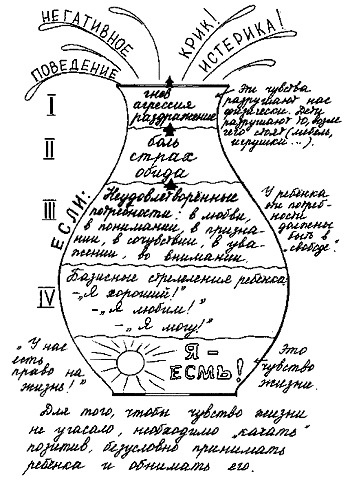 НЕГАТИВНОЕ
ПОВЕДЕНИЕ
КРИК!
ИСТЕРИКА!
I
гнев
агрессия
раздражение
Эти чувства
разрушают нас
физически. Дети
разрушают то, возле
чего стоят (мебель,
игрушки...).
II
боль
страх
обида
ЕСЛИ:
III
Неудовлетворённые
потребности: в любви,
в понимании, в призна-
нии, в сочувствии, в ува-
жении, во внимании.
У ребёнка
эти потреб-
ности
должны
быть в
„свободе"
IV
Базисные стремления ребёнка:
-„Я хороший!"
-„Я любим!"
-„Я могу!"
„У нас
есть
право на
жизнь!"
Я -
ЕСМЬ!
Это
чувство
жизни.
Для того, чтобы чувство жизни
не угасало, необходимо „качать"
позитив, безусловно принимать
ребёнка и обнимать его.